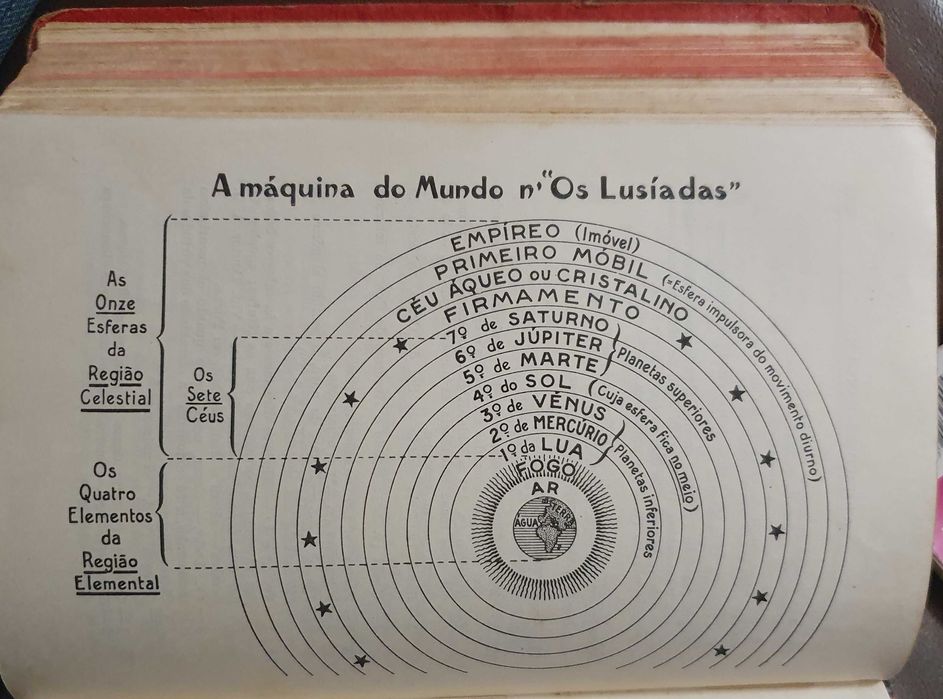 A máquina do Mundo n' "Os Lusíadas"
As
Onze
Esferas
da
Região
Celestial
Os
Sete
Céus
Os
Quatro
Elementos
da
Região
Elemental
EMPÍREO (Imóvel)
PRIMEIRO MÓBIL (=Esfera impulsora do movimento diurno)
CÉU ÁQUEO OU CRISTALINO
FIRMAMENTO
7º de SATURNO
6º de JÚPITER
5º de MARTE
Planetas superiores
4º do SOL (Cuja esfera fica no meio)
3º de VÊNUS
2º de MERCÚRIO
1º da LUA
Planetas inferiores
FOGO
AR
TERRA
AGUA